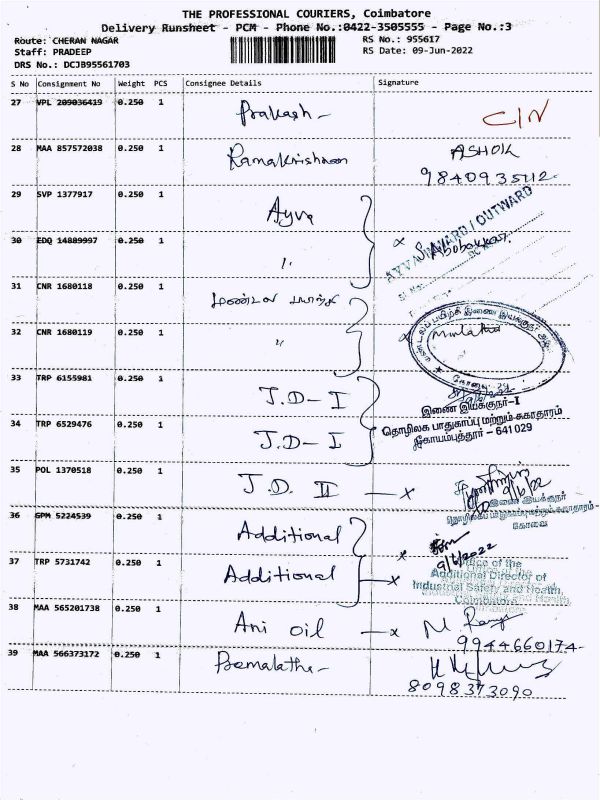 THE PROFESSIONAL COURIERS, Coimbatore
Delivery Runsheet - PCM - Phone No.:0422-3505555 - Page No.:3
Route: CHERAN NAGAR
RS No.: 955617
Staff: PRADEEP
RS Date: 09-Jun-2022
DRS No.: DCJB95561703
S No Consignment No Weight PCS Consignee Details Signature
27 VPL 209036419 0.250 1 Prakash - C/N
28 MAA 857572038 0.250 1 Ramakrishnan ASHOK
9840935112
29 SVP 1377917 0.250 1 Ayva
AYVA INWARD / OUTWARD
30 EDQ 14889997 0.250 1 "
31 CNR 1680118 0.250 1
32 CNR 1680119 0.250 1 "
கோவை
33 TRP 6155981 0.250 1 J.D- I
இணை இயக்குநர்-I
தொழிலக பாதுகாப்பு மற்றும் சுகாதாரம்
34 TRP 6529476 0.250 1 J.D- I
கோயம்புத்தூர் - 641029
35 POL 1370518 0.250 1 J.D. II - x
9/6/22
இணை இயக்குநர்
தொழிலகப் பாதுகாப்பு மற்றும் சுகாதாரம்
கோவை
36 GPM 5224539 0.250 1 Additional
9/6/2022
37 TRP 5731742 0.250 1 Additional - x
Office of the
Additional Director of
Industrial Safety and Health,
Coimbatore
38 MAA 565201738 0.250 1 Ani oil - x
9944660174
39 MAA 566373172 0.250 1 Premalatha -
8098373090